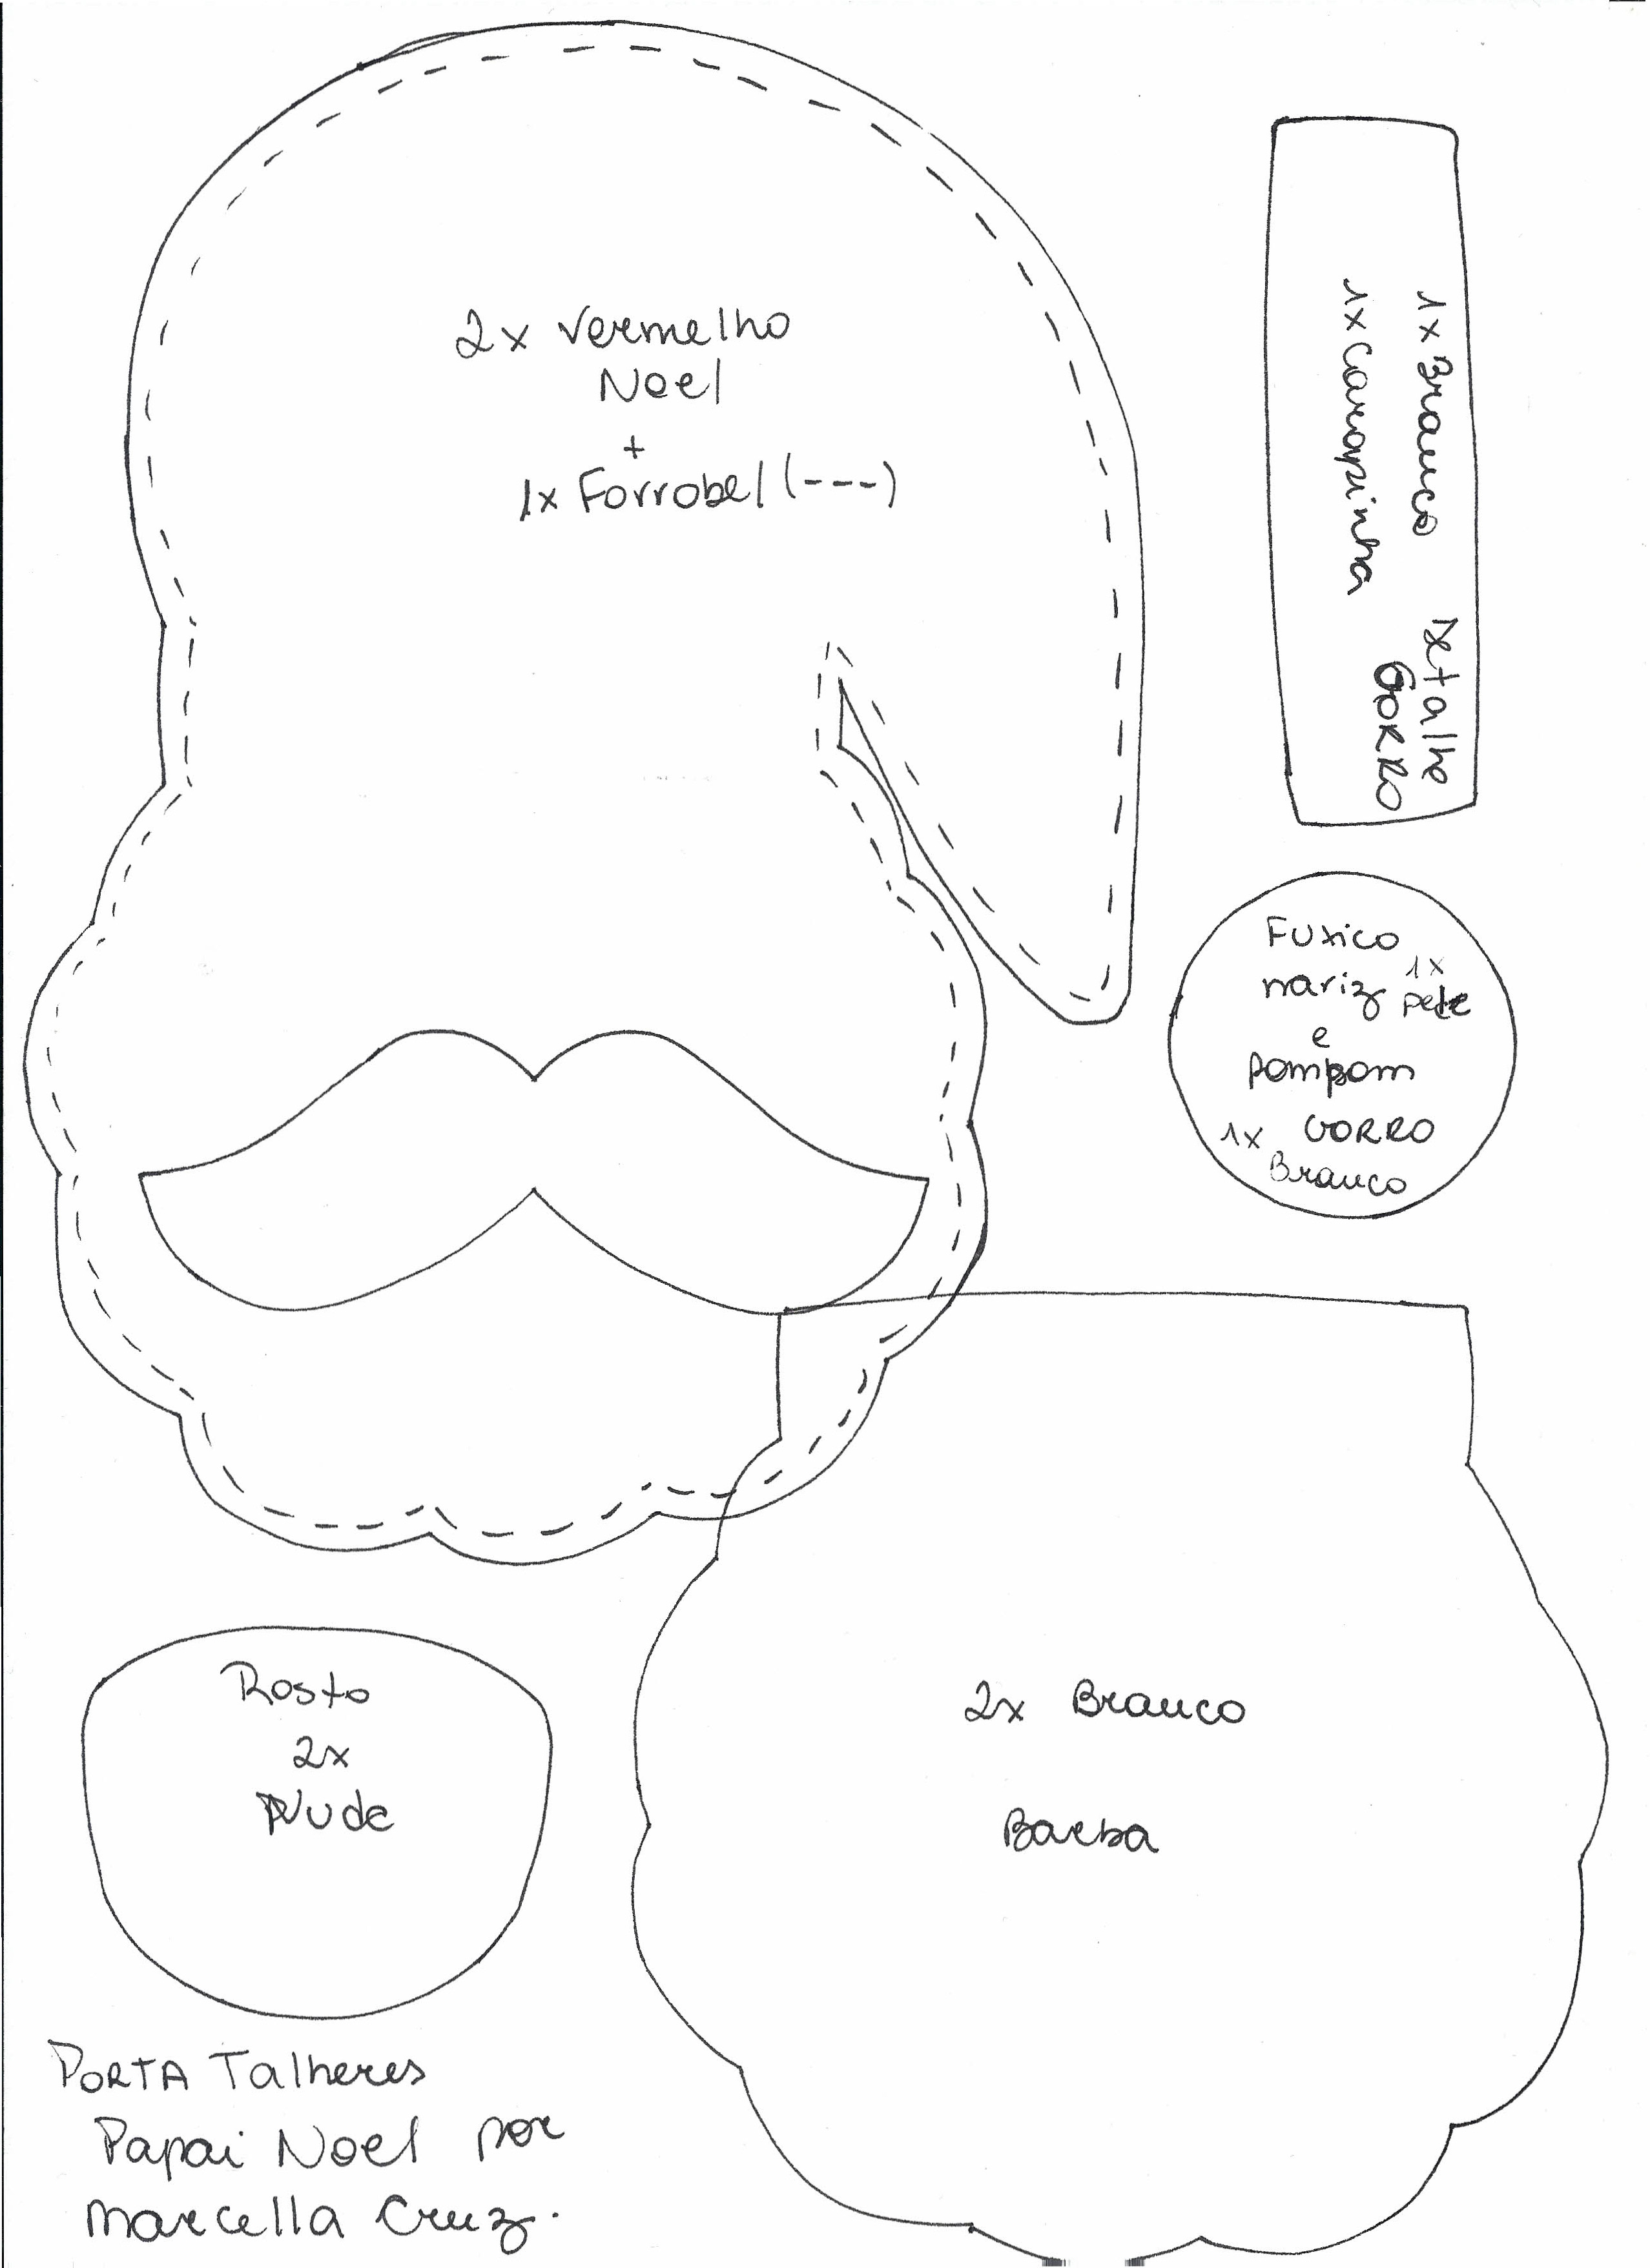 2x Vermelho
Noel
+
1x Forrobel (---)
1x Branco Detalhe
1x Carapinha GORRO
Fuxico
nariz 1x pele
e
pompom
1x GORRO
Branco
2x Branco
Barba
Rosto
2x
Nude
PORTA Talheres
Papai Noel por
Marcella Cruz.